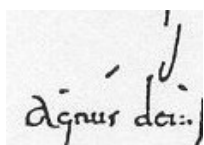 Agnus dei:.